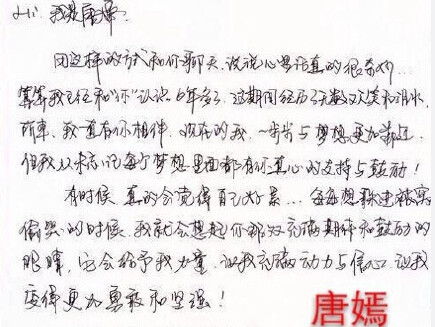 Hi：我是唐嫣。
用这样的方式和你聊天，说说心里话真的很奇妙…
算算我已经和“你”认识6年多了，这期间经历了无数次欢笑和泪水，
所幸，我一直有你相伴，现在的我，一步步与梦想更加靠近，
但我从未忘记每个梦想里面都有你真心的支持与鼓励！
有时候，真的会觉得自己好累…每每想躲进被窝
偷哭的时候，我就会想起你那双充满期待和鼓励的
眼睛，它会给予我力量，让我充满动力与信心，让我
变得更加勇敢和坚强！
唐嫣